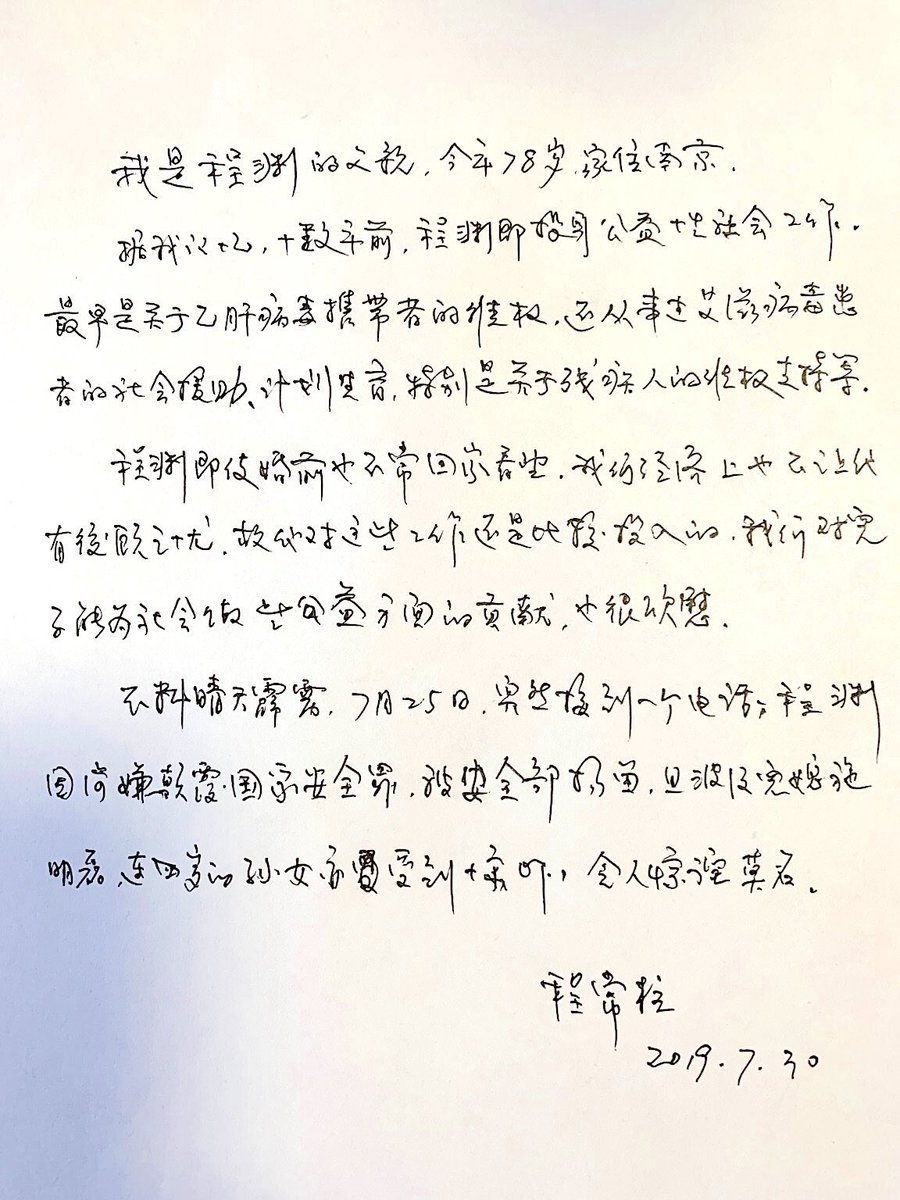 我是程渊的父亲，今年78岁，家住南京．
据我记忆，十数年前，程渊即投身公益性社会工作．
最早是关于乙肝病毒携带者的维权，还从事过艾滋病毒患
者的社会援助、计划生育，特别是关于残疾人的维权支持等．
程渊即使婚前也不常回家，我们经济上也不让他
有後顾之忧．故他对这些工作还是比较投入的．我们对儿
子能为社会做些公益方面的贡献，也很欣慰．
不料晴天霹雳，7月25日，突然接到一个电话；程渊
因涉嫌颠覆国家安全罪，被安全部拘留，且波及儿媳施
明磊，连四岁的孙女亦受到惊吓，令人惊诧莫名．
程常柱
2019.7.30